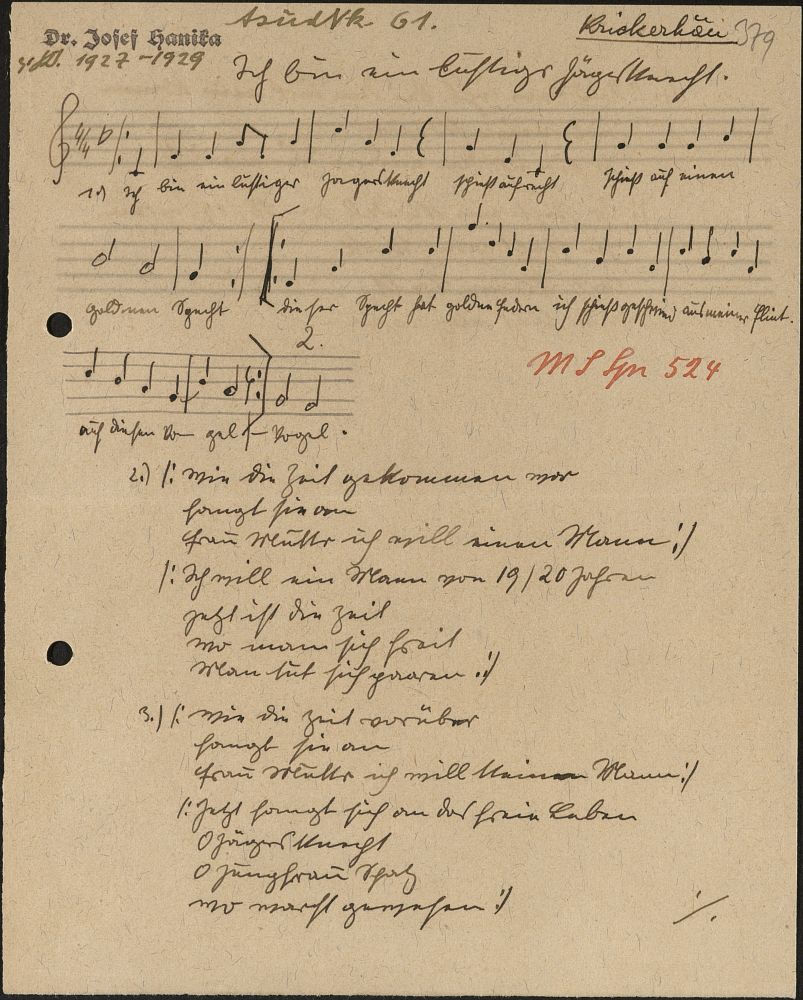 AsudVk 61.
Krickerhäu 379
Dr. Josef Hanika
1927-1929
Ich bin ein lustiger Jägersknecht.
4/4
1.) Ich bin ein lustiger Jagersknecht schieß auf recht schieß auf einen
goldenen Specht dieser Specht hat goldne Federn ich schieß geschwind aus meiner Flint.
2.
MS Spr 524
auf diesen Vo- gel - Vogel.
2.) /: wie die Zeit gekommen war
fangt sie an
Frau Mutter ich will einen Mann :/
/: Ich will ein Mann von 19/20 Jahren
jetzt ist die Zeit
wo man sich freit
Man tut sich paaren :/
3.) /: wie die Zeit vorüber
fangt sie an
Frau Mutter ich will keinen Mann :/
/: Jetzt fangt sich an das freie Leben
O Jägersknecht
O Jungfrau Schatz
wo warst gewesen :/
./.